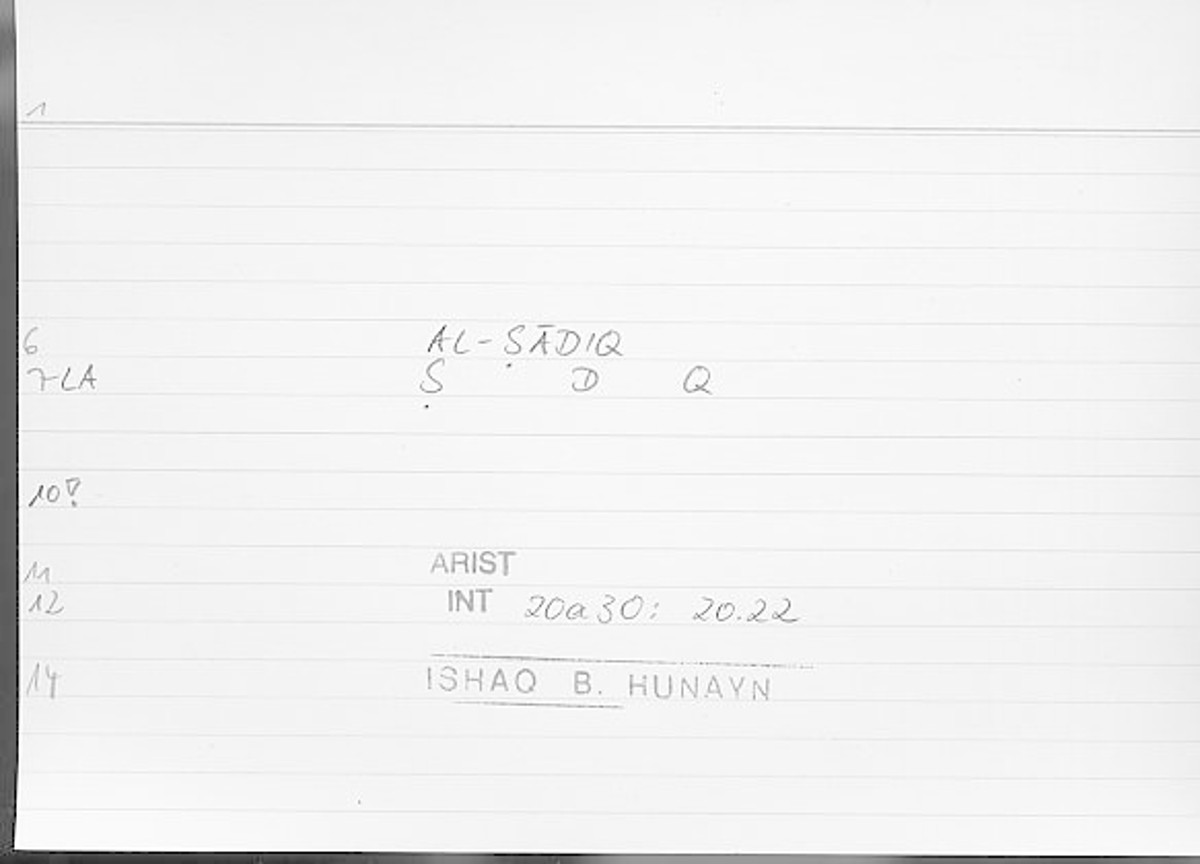 1
6 AL-ṢĀDIQ
7-LA Ṣ D Q
10?
11 ARIST
12 INT 20a30: 20.22
14 ISHAQ B. HUNAYN